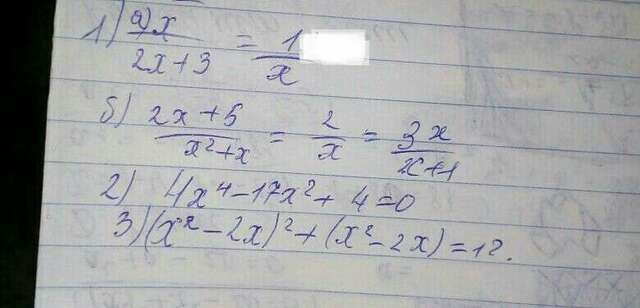 1) а) x/(2x+3) = 1/x
б) (2x+5)/(x²+x) = 2/x = 3x/(x+1)
2) 4x⁴-17x²+4=0
3) (x²-2x)²+(x²-2x)=12.